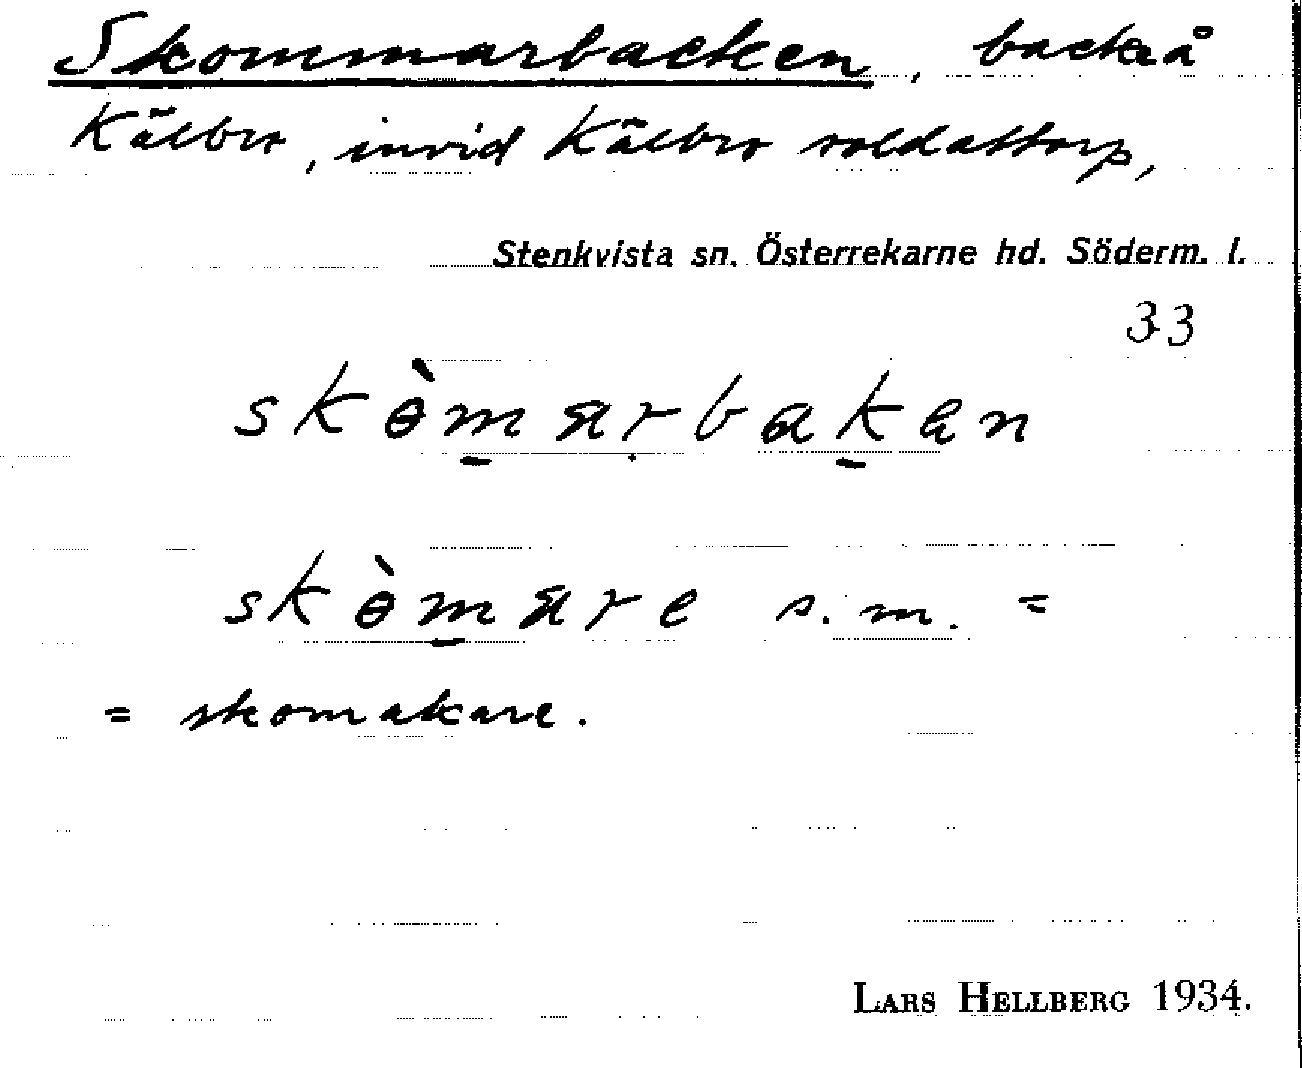 Skommarbacken, backe å
Kälbro, invid Kälbro soldattorp,
Stenkvista sn. Österrekarne hd. Söderm. l.
33
skɵ̀m̲arbak̲ən
skɵ̀m̲are s. m. =
= skomakare.
LARS HELLBERG 1934.